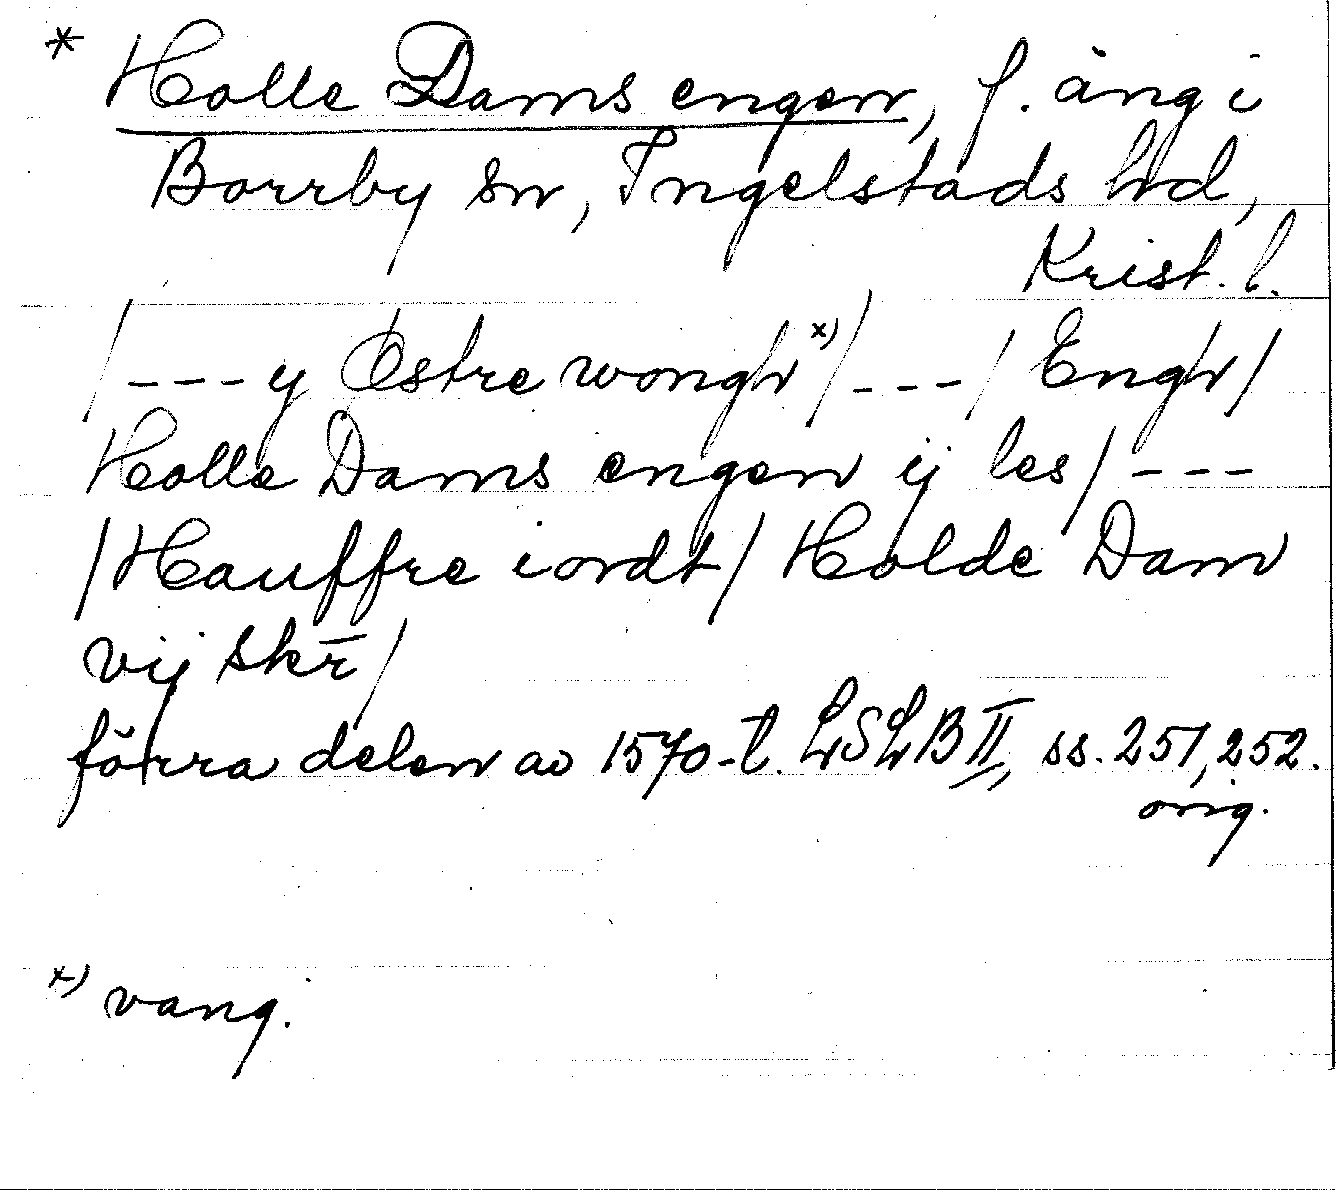 * Holle Dams engen, f. äng i
Borrby sn, Ingelstads hd,
Krist. l.
/---y Østre wongh x)/---/Engh/
Holle Dams engen ij les/---
/Hauffre iordt/Holde Dam
vij skr̄/
förra delen av 1570-t. LSLB II, ss. 251, 252.
orig.
x) vang.